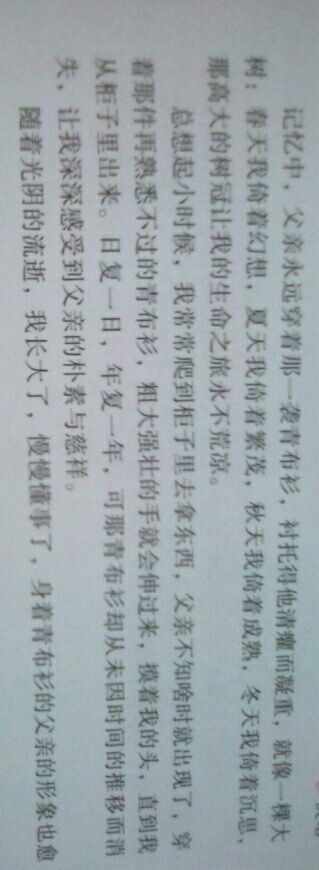 记忆中，父亲永远穿着那一袭青布衫，衬托得他清癯而凝重，就像一棵大
树：春天我倚着幻想，夏天我倚着繁茂，秋天我倚着成熟，冬天我倚着沉思，
那高大的树冠让我的生命之旅永不荒凉。
总想起小时候，我常常爬到柜子里去拿东西，父亲不知啥时就出现了，穿
着那件再熟悉不过的青布衫，粗大强壮的手就会伸过来，摸着我的头，直到我
从柜子里出来。日复一日，年复一年，可那青布衫却从未因时间的推移而消
失，让我深深感受到父亲的朴素与慈祥。
随着光阴的流逝，我长大了，慢慢懂事了，身着青布衫的父亲的形象也愈